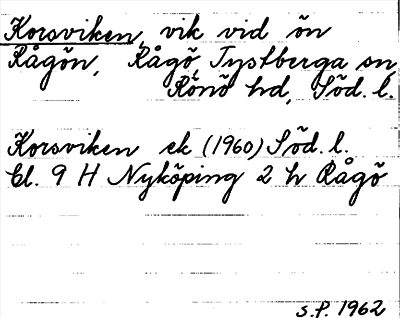 Korsviken, vik vid ön
Rågön, Rågö, Tystberga sn
Rönö hd, Söd. l.
Korsviken ek (1960) Söd. l.
bl. 9 H Nyköping 2 h Rågö
S.P. 1962